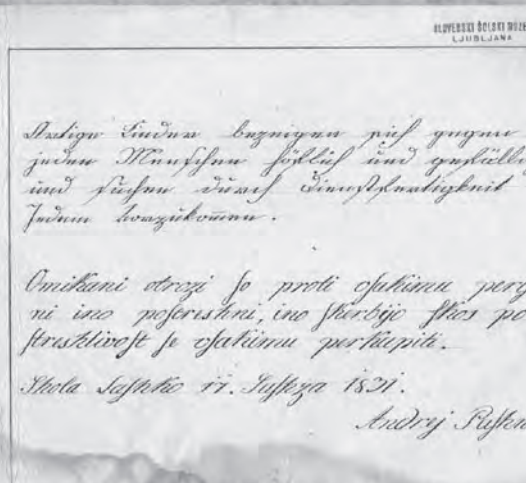 SLOVENSKI ŠOLSKI MUZE
LJUBLJANA
Artige Kinder bezeigen sich gegen
jeden Menschen höflich und gefällig
und suchen durch Dienstfertigkeit
Jedem zuvorzukom̄en.
Omikani otrozi ſo proti vſakimu
ni ino poſtreshni, ino ſkerbijo ſkos po
ſtreshlivoſt ſe vſakimu perkupiti.
Shola 1831.
Andrej